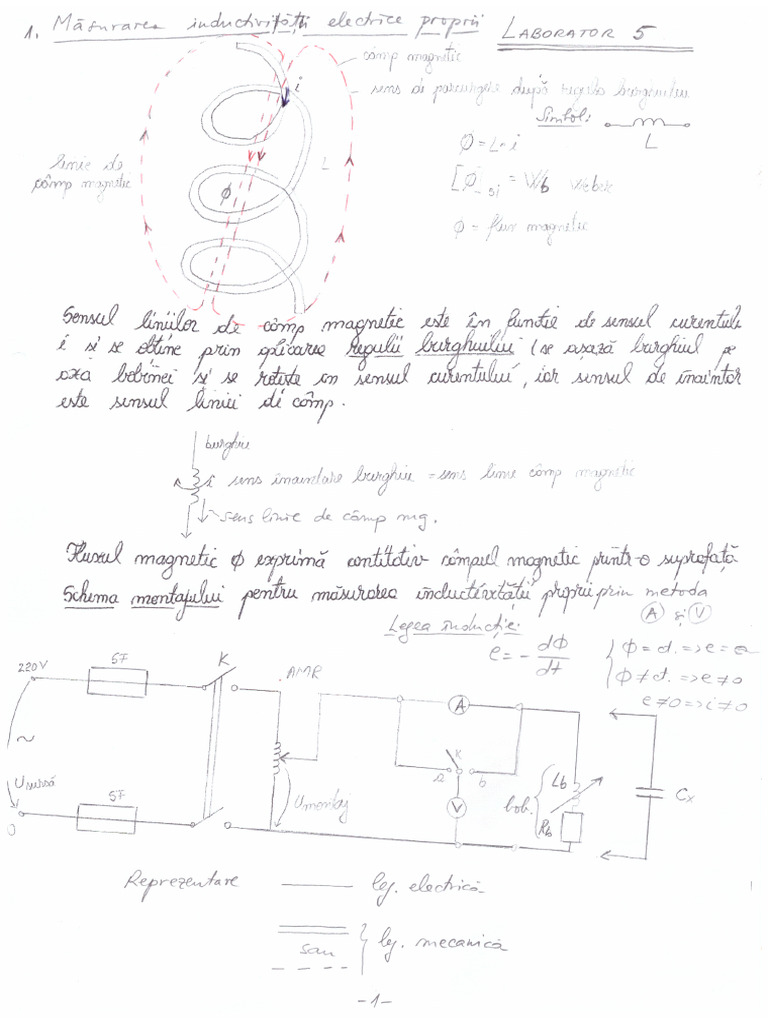 1. Măsurarea inductivității electrice proprii
LABORATOR 5
câmp magnetic
i
sens de parcurgere după regula burghiului
Simbol:
L
Φ = L · i
linie de
câmp magnetic
L
Φ
[Φ]SI = Wb Weber
Φ = flux magnetic
Sensul liniilor de câmp magnetic este în functie de sensul curentului
i si se obtine prin aplicarea regulii burghiului (se așază burghiul pe
axa bobinei si se roteste în sensul curentului, iar sensul de înaintar
este sensul liniei de câmp.
burghiu
i sens înaintare burghiu = sens linie câmp magnetic
sens linie de câmp mg.
Fluxul magnetic Φ exprimă cantitativ câmpul magnetic printr-o suprafață
Schema montajului pentru măsurarea inductivității proprii prin metoda
A și V
Legea inducție:
e = - dΦ/dt
Φ = ct. => e = 0
Φ ≠ ct. => e ≠ 0
e ≠ 0 => i ≠ 0
220V
SF
K
AMR
A
K
a
b
~
Usursă
SF
Umontaj
V
bob.
Lb
Rb
Cx
0
Reprezentare
leg. electrică
sau
leg. mecanică
-1-